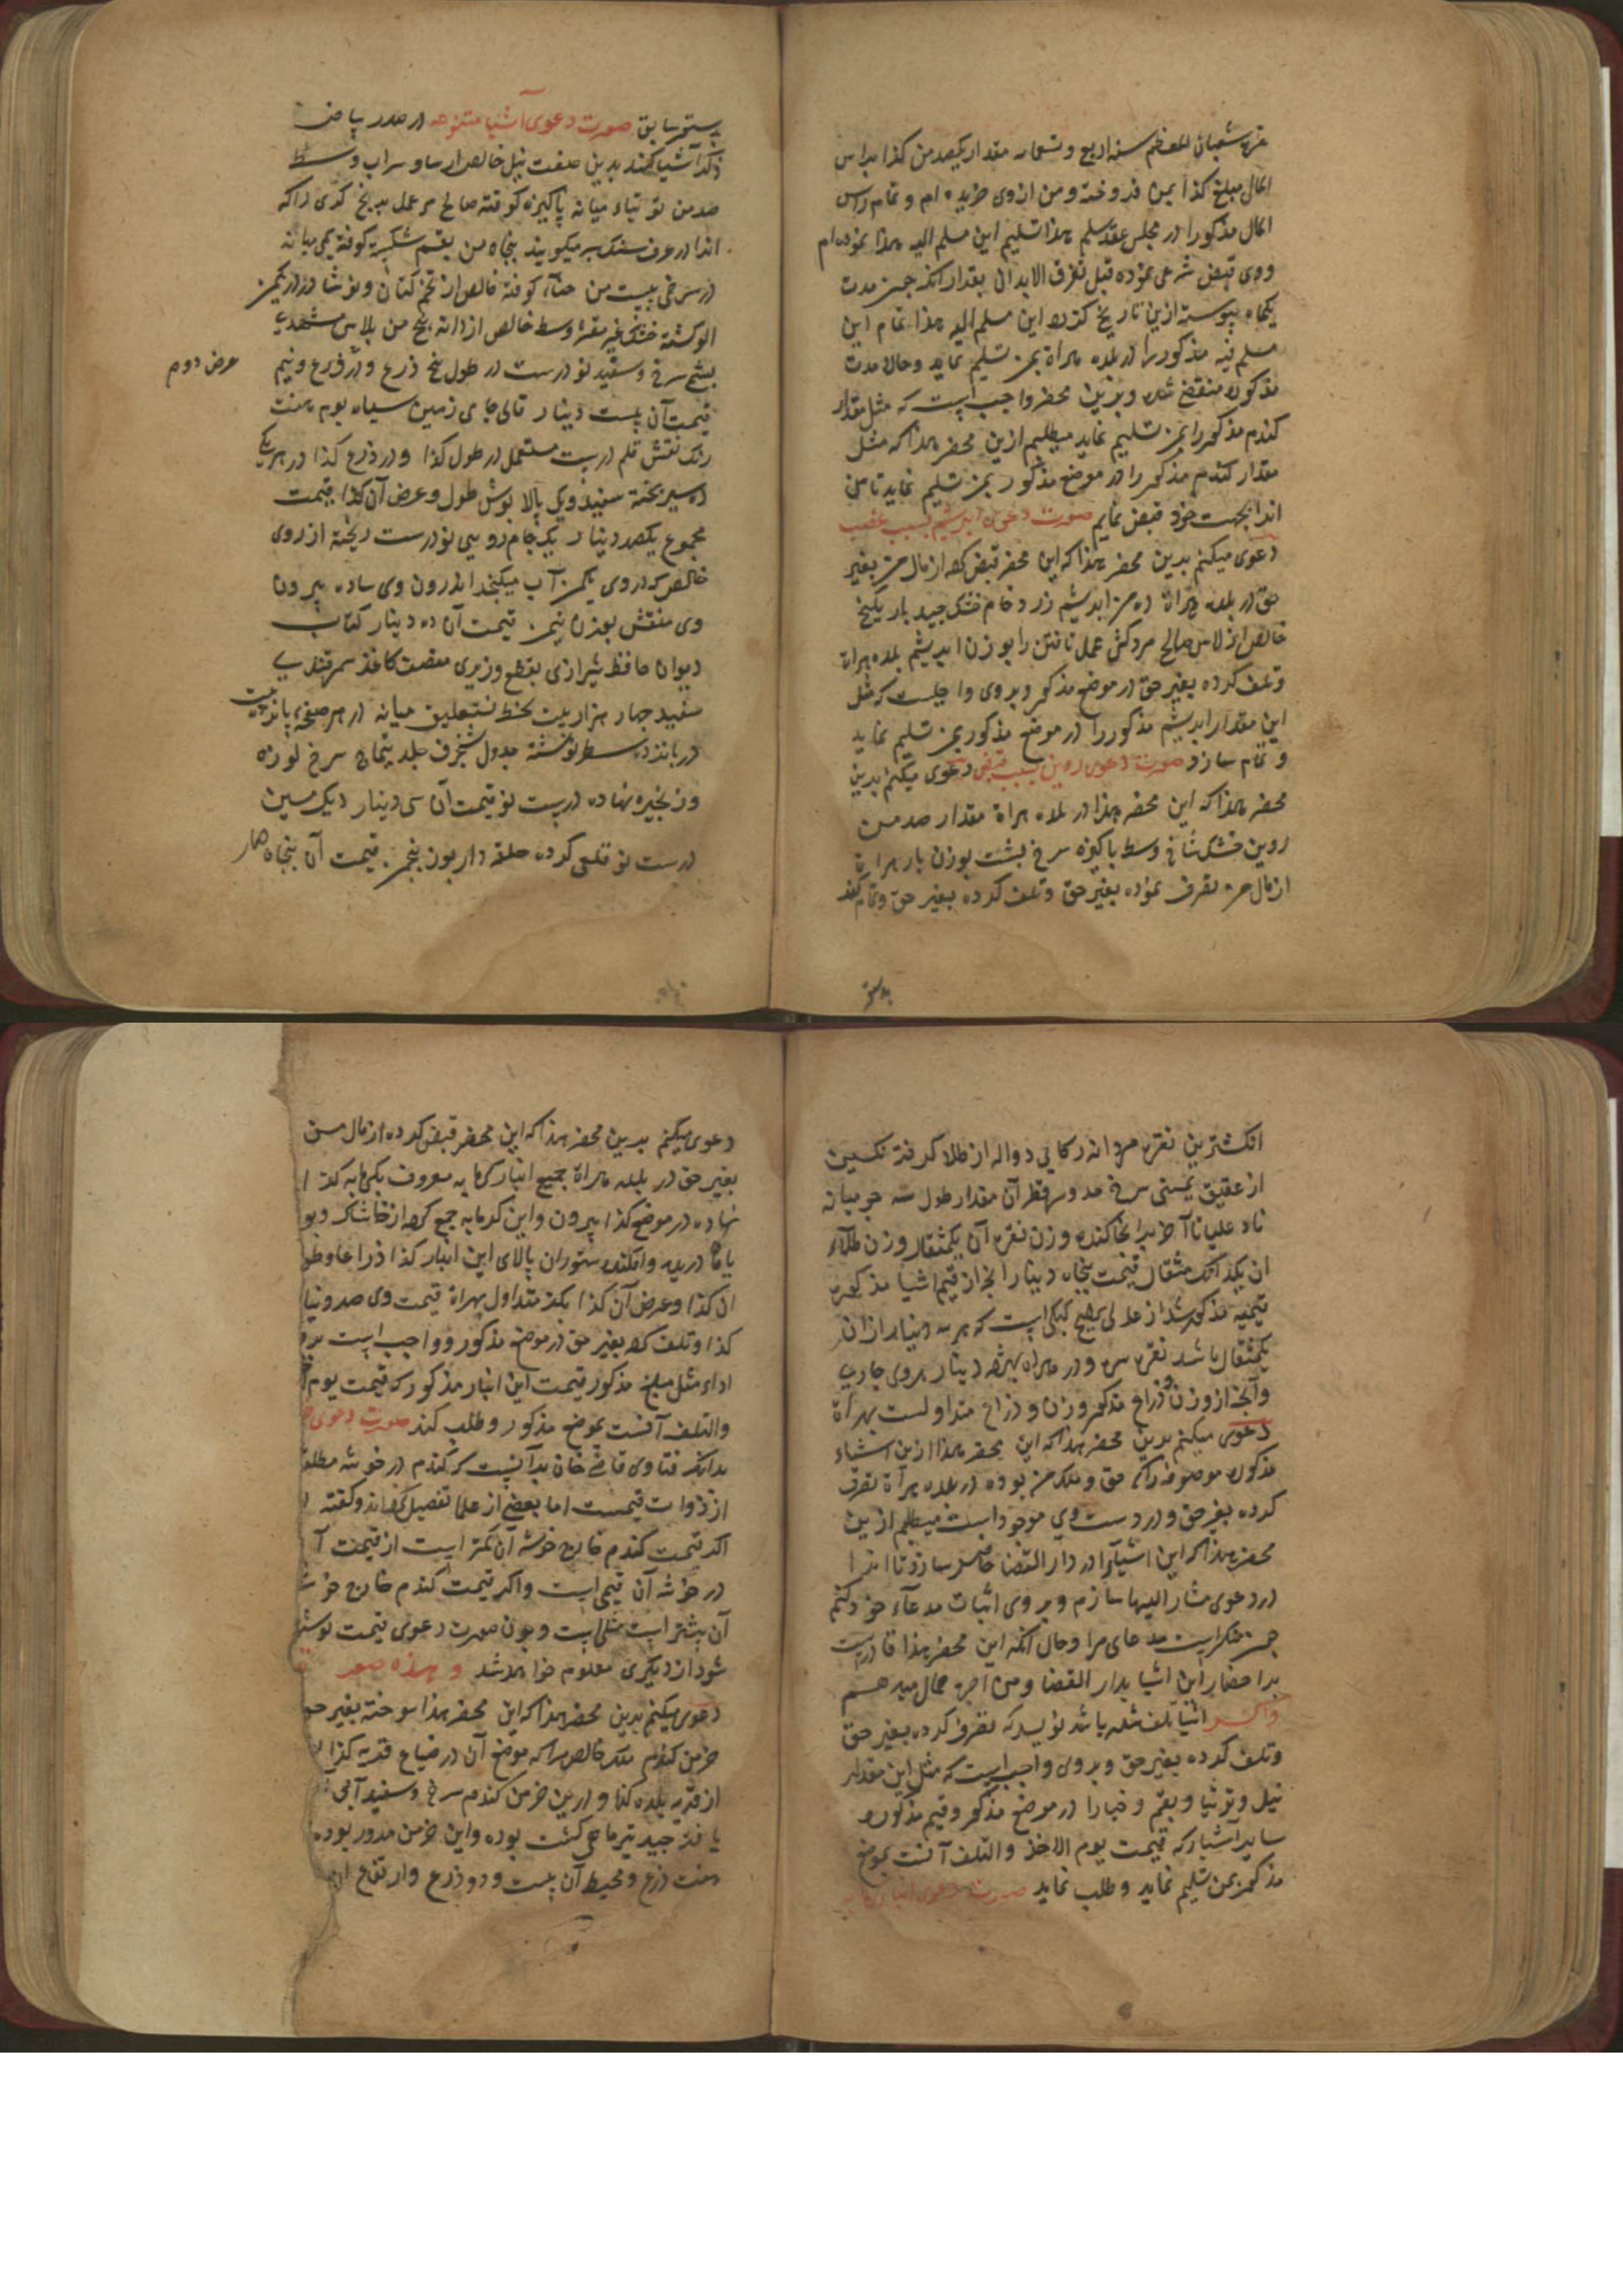 غره شعبان المعظم سنه اربع و تسعمایه مقدار یکصد من کذا براس
المال مبلغ کذا بمن فروخته و من از وی خریده ام و تمام راس
المال مذکور را در مجلس عقد سلم بهذا تسلیم این مسلم الیه بهذا نموده ام
و وی قبض شرعی نموده قبل تفرق الابدان بعد از انکه جهت مدت
یکماه پیوسته ازین تاریخ کرده این مسلم الیه بهذا تمام این
مسلم فیه مذکور را در بلده هراة بمن تسلیم نماید و حالا مدت
مذکوره منقضی شده و برین محضر واجب است که مثل مقدار
کندم مذکور را بمن تسلیم نماید میطلبم ازین محضر بهذا که مثل
مقدار کندم مذکور را در موضع مذکور بمن تسلیم نماید تا من
اندا بجهت خود قبض نمایم صورت دعوی ابریشم بسبب غصب
دعوی میکنم بدین محضر بهذا که این محضر قبض کرده از مال من بغیر
حق در بلده هراة ده من ابریشم زرد خام خشک جید بار یکیخ
خالص از لاس صالح مر کش عمل تافتن را بوزن ابریشم بلده هراة
و تلف کرده بغیر حق در موضع مذکور و بر وی واجبست که مثل
این مقدار ابریشم مذکور را در موضع مذکور بمن تسلیم نماید
و تمام سازد صورت دعوی روین بسبب قبض دعوی میکنم بدین
محضر بهذا که این محضر بهذا در بلده هراة مقدار صد من
روین خشک شاخ وسط پاکیزه سرخ بشت بوزن بار هراة
از مال من تصرف نموده بغیر حق و تلف کرده بغیر حق و تمام کند
بدستور
بدستور سابق صورت دعوی اشیا متنوعه در صدر بیاض
ذکر اشیا کند بدین صفت نیل خالص ار ساو سراب وسط
صد من توتیاء میانه پاکیزه کوفته صالح مر عمل بدیخ کری را که
اندا در عرف سنک بر میکویند پنجاه من بقم شکسته کوفته نمی میانه
در سرخی بیست من حناء کوفته خالص از تخم کتان و نوشادر در یکمن
الو کشته خشک غیر مقشر وسط خالص از دانه پنج من پلاس مشهدی
بشم سرخ و سفید نو درست در طول پنج ذرع و در ذرع و نیم
عرض دوم
قیمت آن بیست دینار قالی جامی زمین سیاه بوم هفت
رنک نقش قلم درست مستعمل در طول کذا و در ذرع کذا در هر یکی
ده سیر پخته سفید و یک بالا پوش طول و عرض آن کذا قیمت
مجموع یکصد دینار یک جام رویی نو درست ریخته از روی
خالص که در وی یکمن آب میکنجد اندرون وی ساده بیرون
وی منقش بوزن نیم من قیمت آن ده دینار کتاب
دیوان حافظ شیرازی بقطع وزیری منصف کاغذ سمرقندی
سفید چهار هزار بیت بخط نستعلیق میانه در هر صفحه پانزده بیت
در پانزده سطر نوشته جدول شنجرف جلد تیماج سرخ لوزه
و زنجیره نهاده درست نو قیمت آن سی دینار دیک مسین
درست نو قلعی کرده حلقه دار بوزن پنجمن قیمت آن پنجاه دینار
انکشترین نقره مردانه رکابی دواله از طلا کرفته نکین
از عقیق یمنی سرخ مدور قطر آن مقدار طول سه جو میانه
ناد علیا تا آخر بدانجا کنده وزن نقره آن یکمثقال وزن طلاء
ان یکدانک مثقال قیمت پنجاه دینار انچه از قیم اشیا مذکوره
قیمیه مذکور شد از عدلی رایج کپکی است که هر سه دینار از ان
یکمثقال باشد نقره سره و در هراة بهر ده دینار بروی جاریست
و آنچه از وزن و ذراع مذکور وزن و ذراع متداولست بهراة
دعوی میکنم بدین محضر بهذا که این محضر بهذا ازین اشیاء
مذکوره موصوفه را که حق و ملک من بوده در بلده هراة تصرف
کرده بغیر حق و در دست وی موجود است میطلبم ازین
محضر بهذا که این اشیا را در دار القضا حاضر سازد تا اندا
در دعوی مشار الیها سازم و بر وی اثبات مدعاء خود کنم
چه منکر است مدعای مرا و حال آنکه این محضر بهذا قادر است
بدا حضار این اشیا بدار القضا و من اجرت حمال میدهم
و اکر اشیا تلف شده باشد نویسد که تصرف کرده بغیر حق
و تلف کرده بغیر حق و بر وی واجب است که مثل این مقدار
نیل و توتیا و بقم و حنا را در موضع مذکور و قیم مذکوره
سایر اشیا را که قیمت یوم الاخذ و التلف آنست بموضع
مذکور بمن تسلیم نماید و طلب نماید صورت دعوی انبار
دعوی میکنم بدین محضر بهذا که این محضر قبض کرده از مال من
بغیر حق در بلده هراة جمیع انبار کرمابه معروف بکرمابه کذا
نهاده در موضع کذا بیرون و این کرمابه جمع کرده از خاشاک و بو
دریده و افکنده ستوران بالای این انبار کذا ذراعا و طو
ان کذا و عرض آن کذا بکز متداول بهراة قیمت وی صد دینار
کذا و تلف کرده بغیر حق در موضع مذکور و واجب است بر و
اداء مثل مبلغ مذکور قیمت این انبار مذکور که قیمت یوم
و التلف آنست بموضع مذکور و طلب کند صورت دعوی
بدانکه فتاوی قاضی خان بدآنست که کندم در خوشه مطلقا
از ذوات قیمست اما بعضی از علما تفصیل کرده اند و کفته
اکر قیمت کندم خارج خوشه آن کمتر است از قیمت آ
در خوشه آن قیمی است و اکر قیمت کندم خارج خوشه
آن بیشتر است مثلی است و چون صورت دعوی قیمت نوشته
شود از دیکری معلوم خواهد شد و بهذه صور
دعوی میکنم بدین محضر بهذا که این محضر بهذا سوخته بغیر حق
خرمن کندم ملک خالص مرا که موضع آن در ضیاع قریه کذا
از قریه بلده کذا و درین خرمن کندم سرخ و سفید آبی
یافته جید تیرماهی کشت بوده و این خرمن مدور بوده
هفت ذرع و محیط آن بیست و دو ذرع و ارتفاع ان